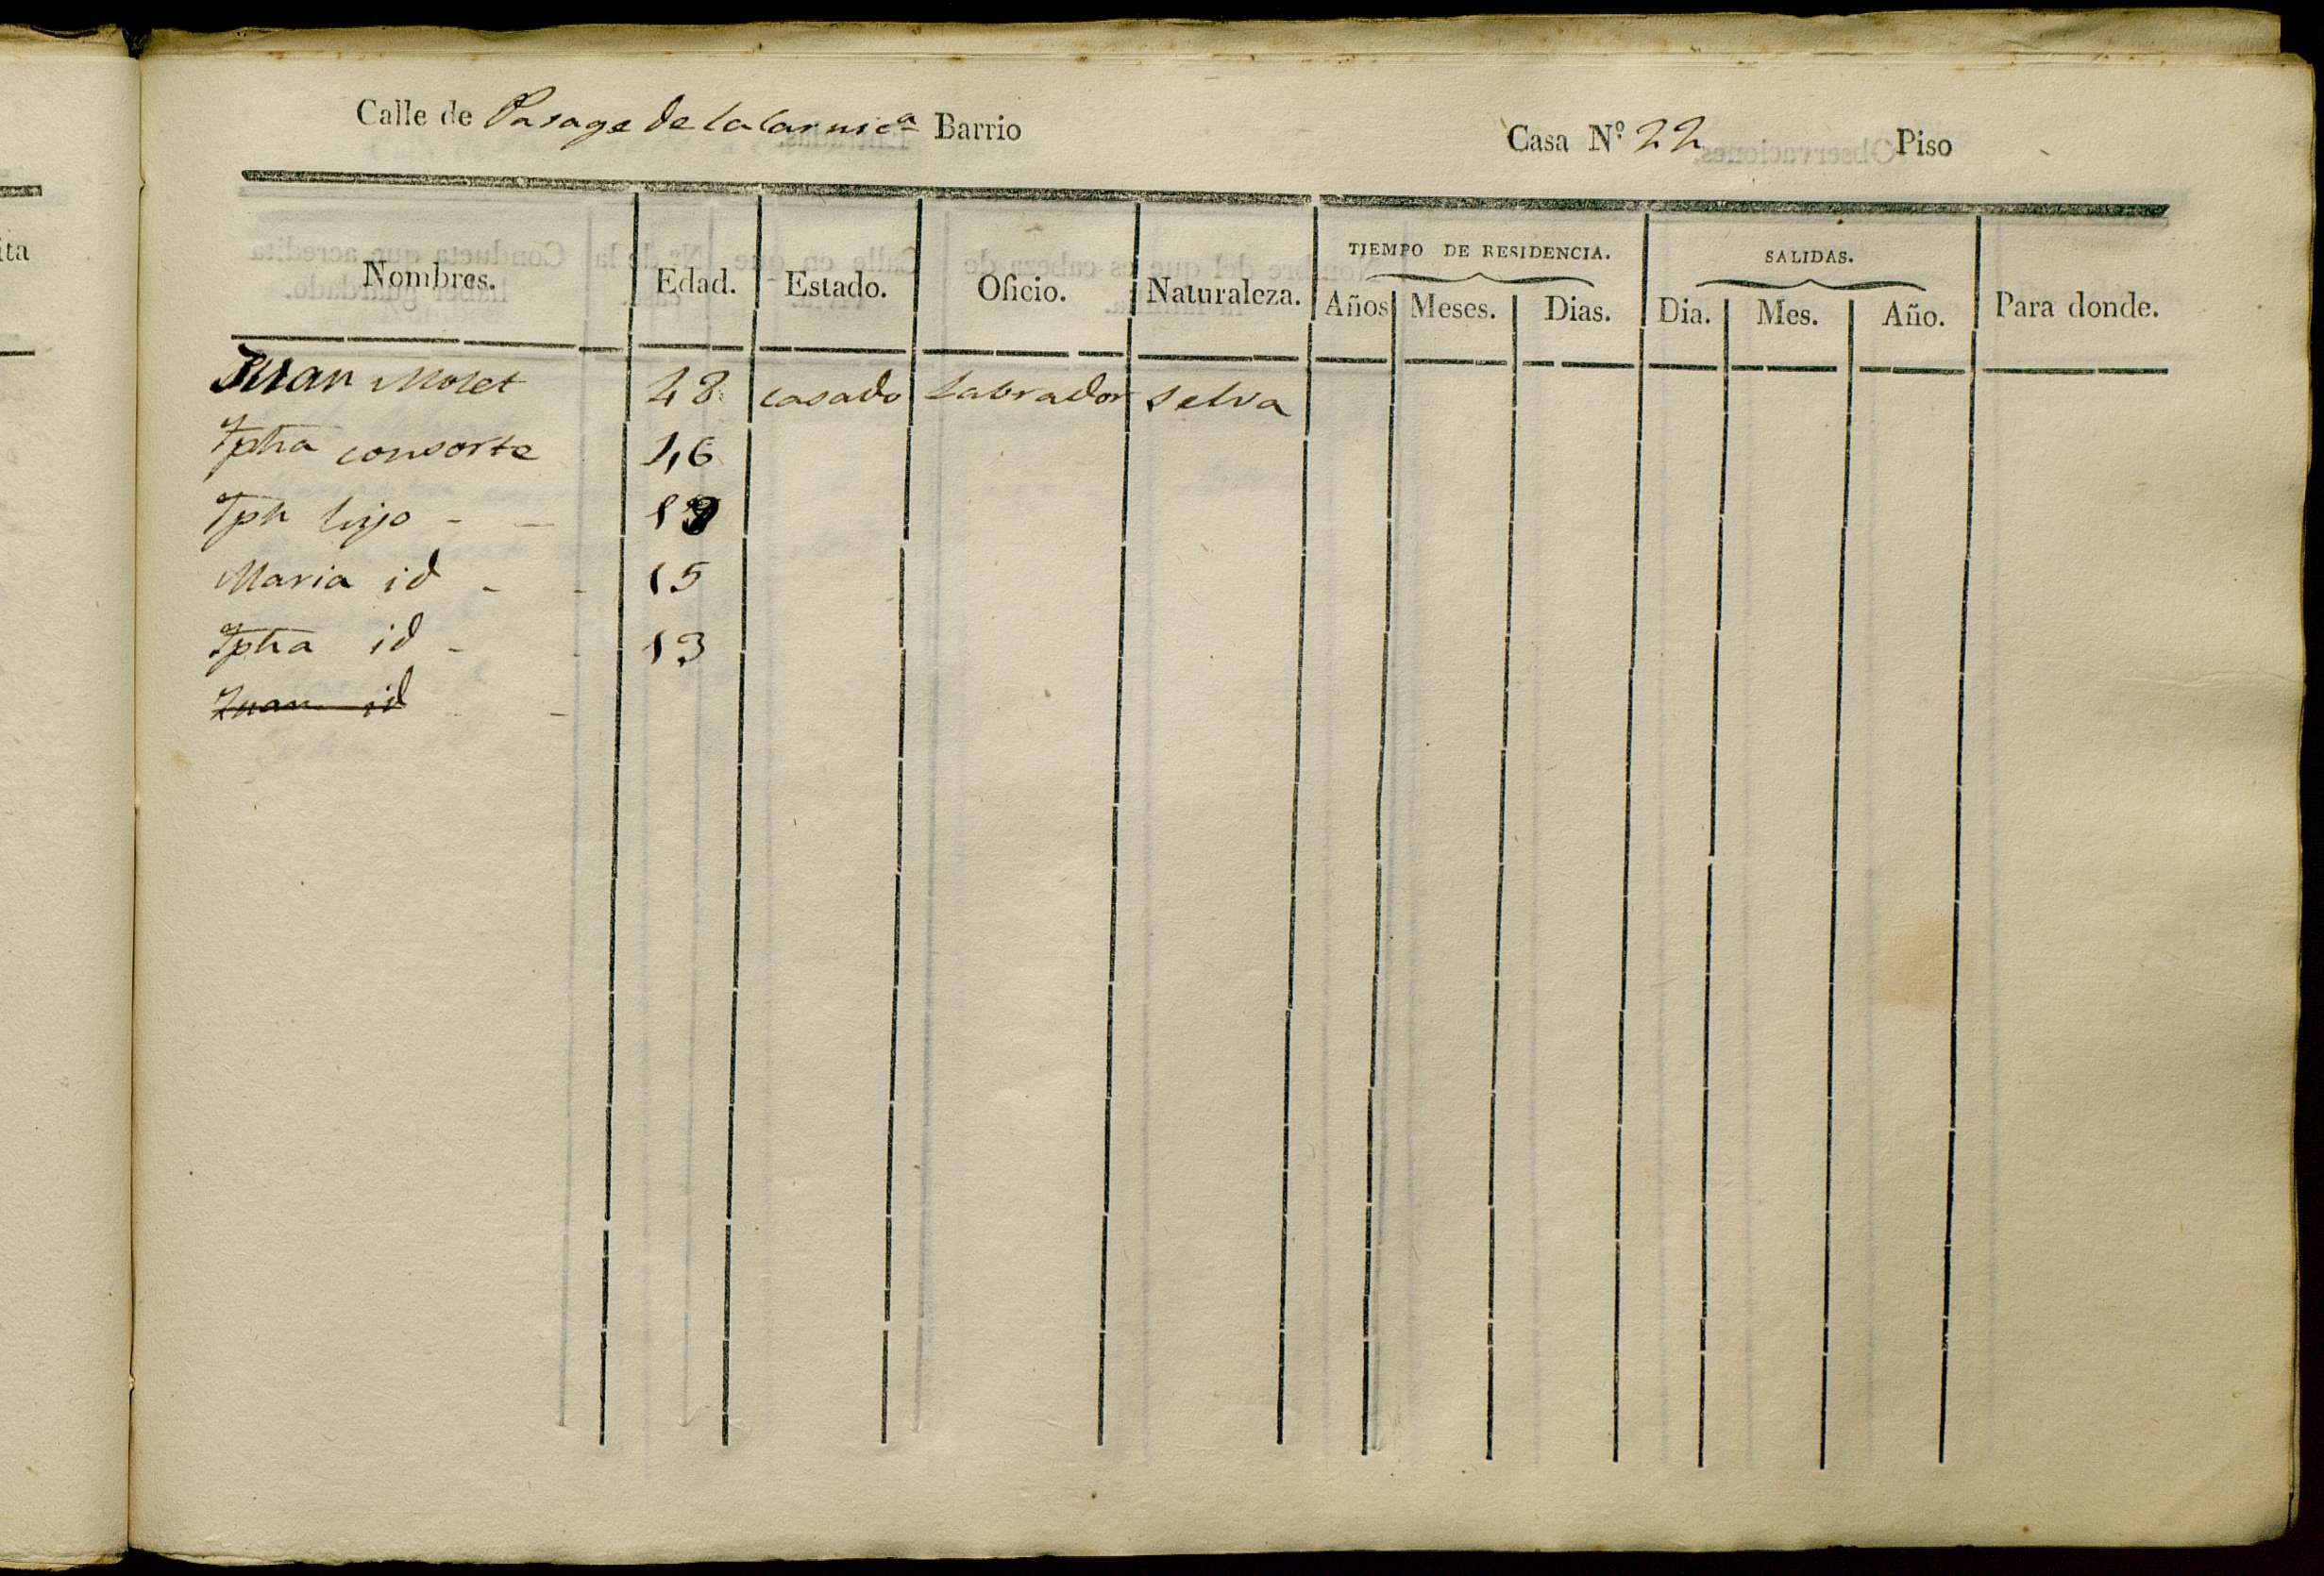 ita
Calle de Pasage de la Carnic.ª Barrio Casa N.º 22 Piso
Nombres. Edad. Estado. Oficio. Naturaleza. TIEMPO DE RESIDENCIA. Años Meses. Dias. SALIDAS. Dia. Mes. Año. Para donde.
Juan Molet 48 casado Labrador Selva
Jpha consorte 46
Jph hijo - - 19
Maria id - - 15
Jpha id - - 13
Juan id -